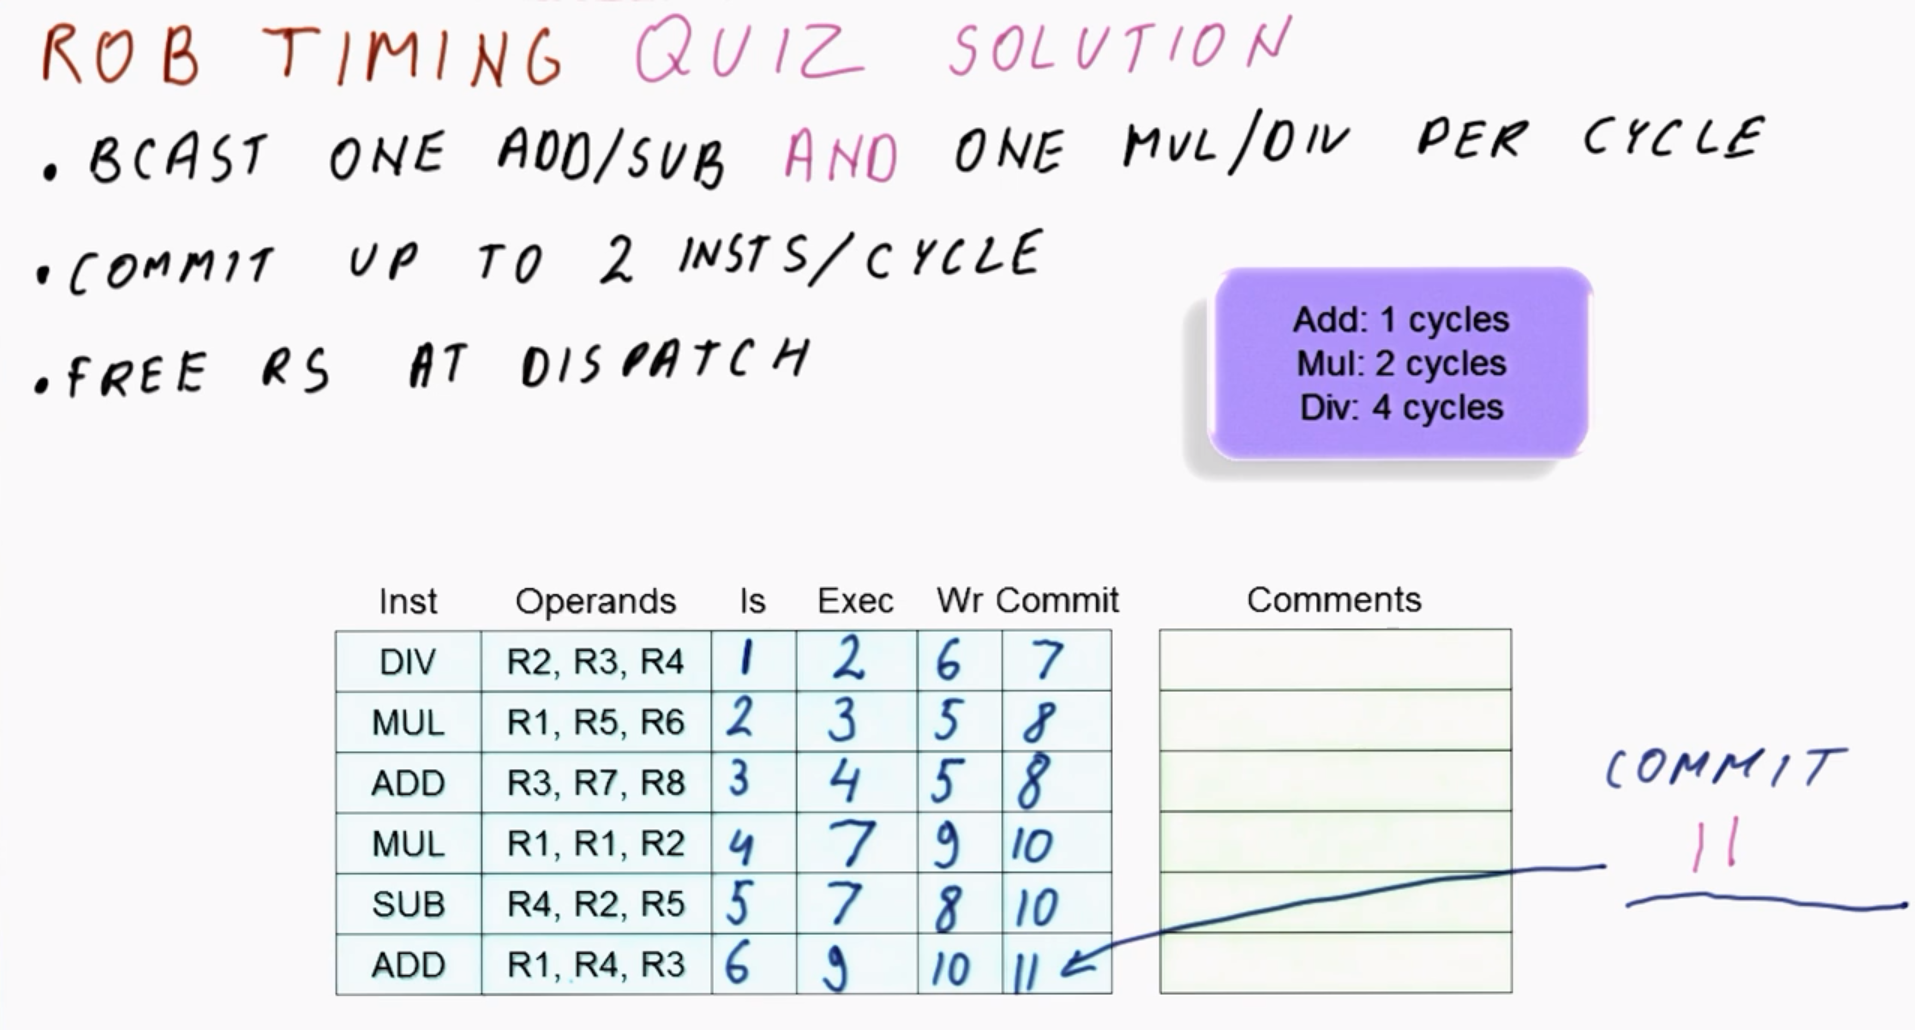 ROB TIMING QUIZ SOLUTION
• BCAST ONE ADD/SUB AND ONE MUL/DIV PER CYCLE
• COMMIT UP TO 2 INSTS/CYCLE
• FREE RS AT DISPATCH
Add: 1 cycles
Mul: 2 cycles
Div: 4 cycles
Inst Operands Is Exec Wr Commit Comments
DIV R2, R3, R4 1 2 6 7
MUL R1, R5, R6 2 3 5 8
ADD R3, R7, R8 3 4 5 8
MUL R1, R1, R2 4 7 9 10
SUB R4, R2, R5 5 7 8 10
ADD R1, R4, R3 6 9 10 11
COMMIT
11